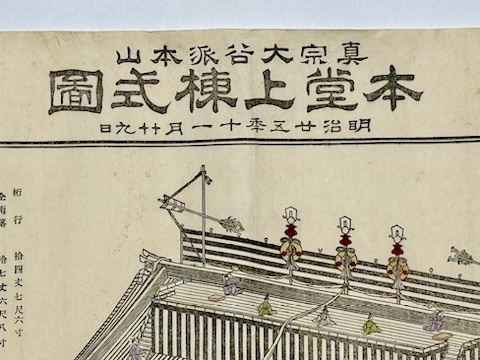 真宗大谷派本山
本堂上棟式圖
明治廿五秊十一月廿九日
桁行 拾四丈七尺六寸
仝雨落 拾七丈六尺八寸